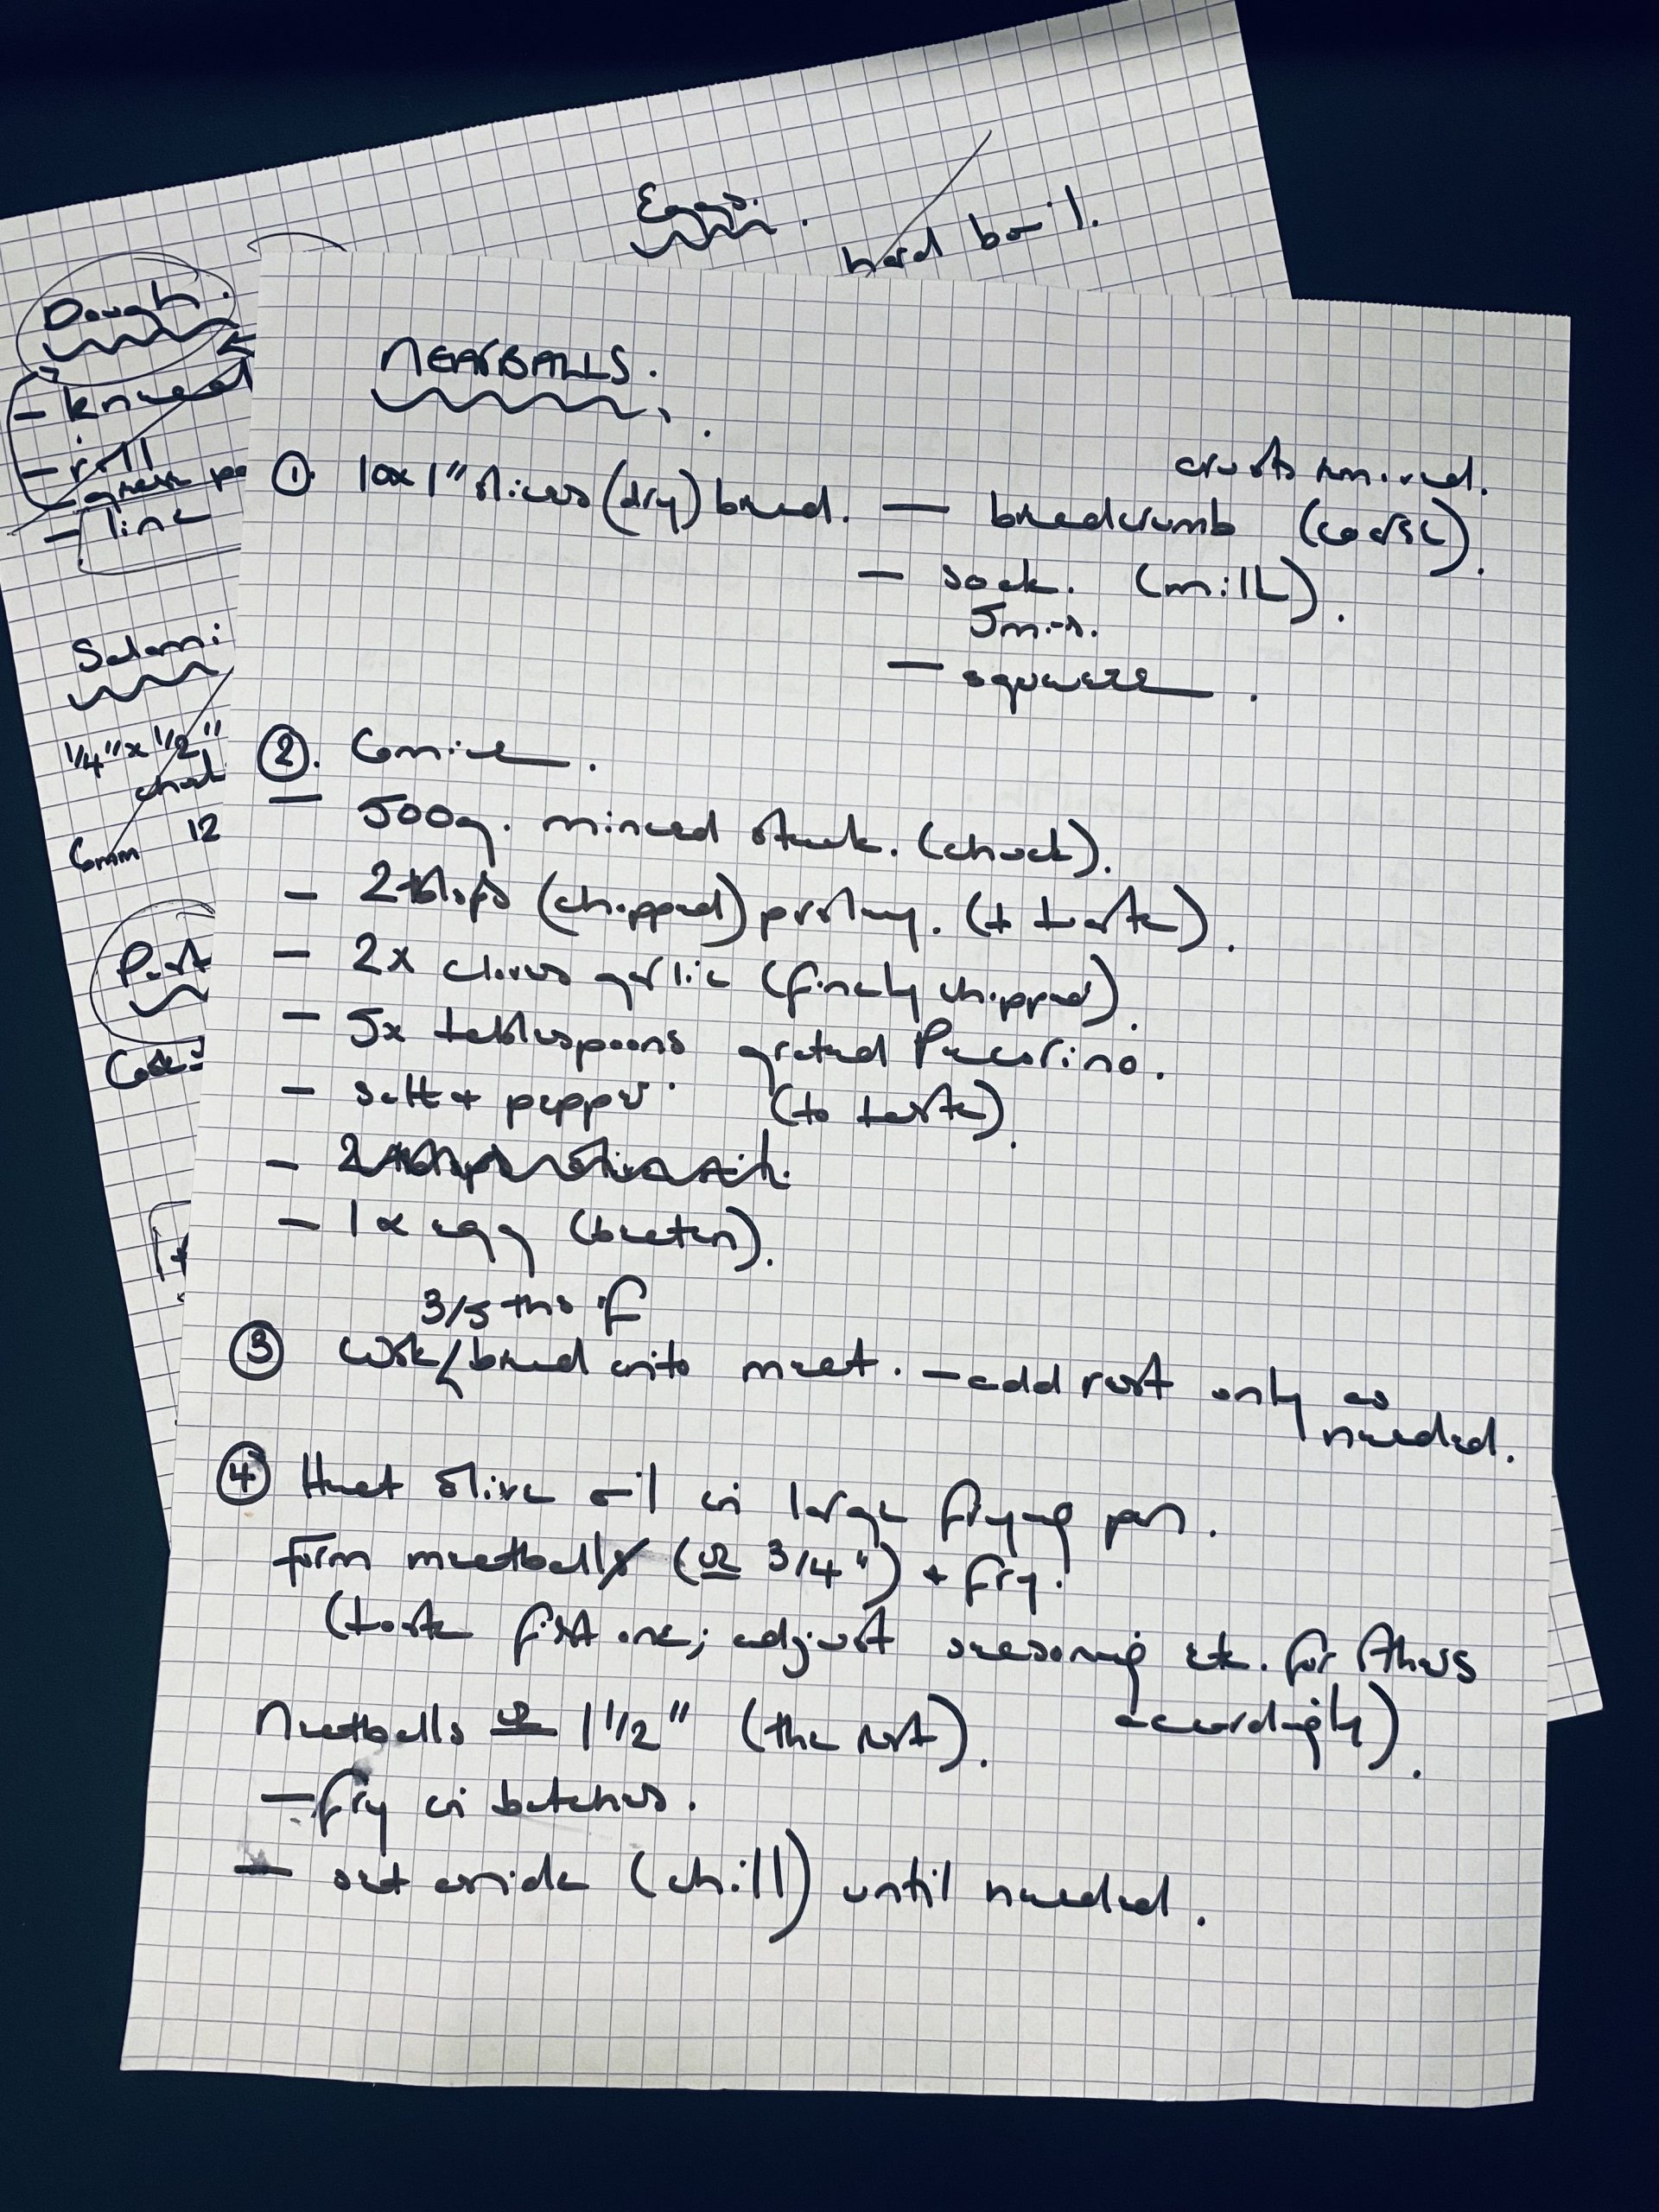 Eggs.
hard boil.
Dough.
- knead
- roll
grease
- line
Salami
1/4" x 1/2"
6mm 12
MEATBALLS.
① 10x 1" slices (dry) bread. — breadcrumb (coarse). crusts removed.
— soak. (milk).
5mins.
— squeeze.
②. Combine.
— 500g. minced steak. (chuck).
— 2 tblsps (chopped) parsley. (to taste).
— 2x cloves garlic (finely chopped).
— 5x tablespoons grated Pecorino.
— salt + pepper (to taste).
— 2 tblsps olive oil.
— 1x egg (beaten).
3/5ths of
③ Work/bread into meat. — add rest only as
needed.
④ Heat olive oil in large frying pan.
Form meatball (≃ 3/4") + fry.
(taste first one; adjust seasoning etc. for others
accordingly).
Meatballs ≃ 1 1/2" (the rest).
— fry in batches.
— set aside (chill) until needed.